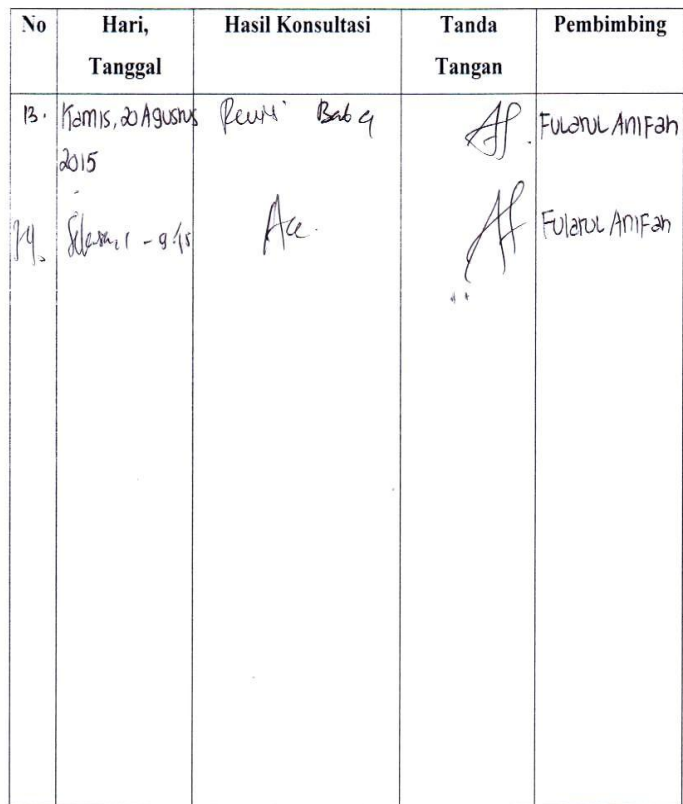 No Hari, Tanggal Hasil Konsultasi Tanda Tangan Pembimbing
13. Kamis, 20 Agustus 2015 Revisi Bab 4 Fularul Anifah
14. Selasa, 1 - 9 '15 Acc. Fularul Anifah